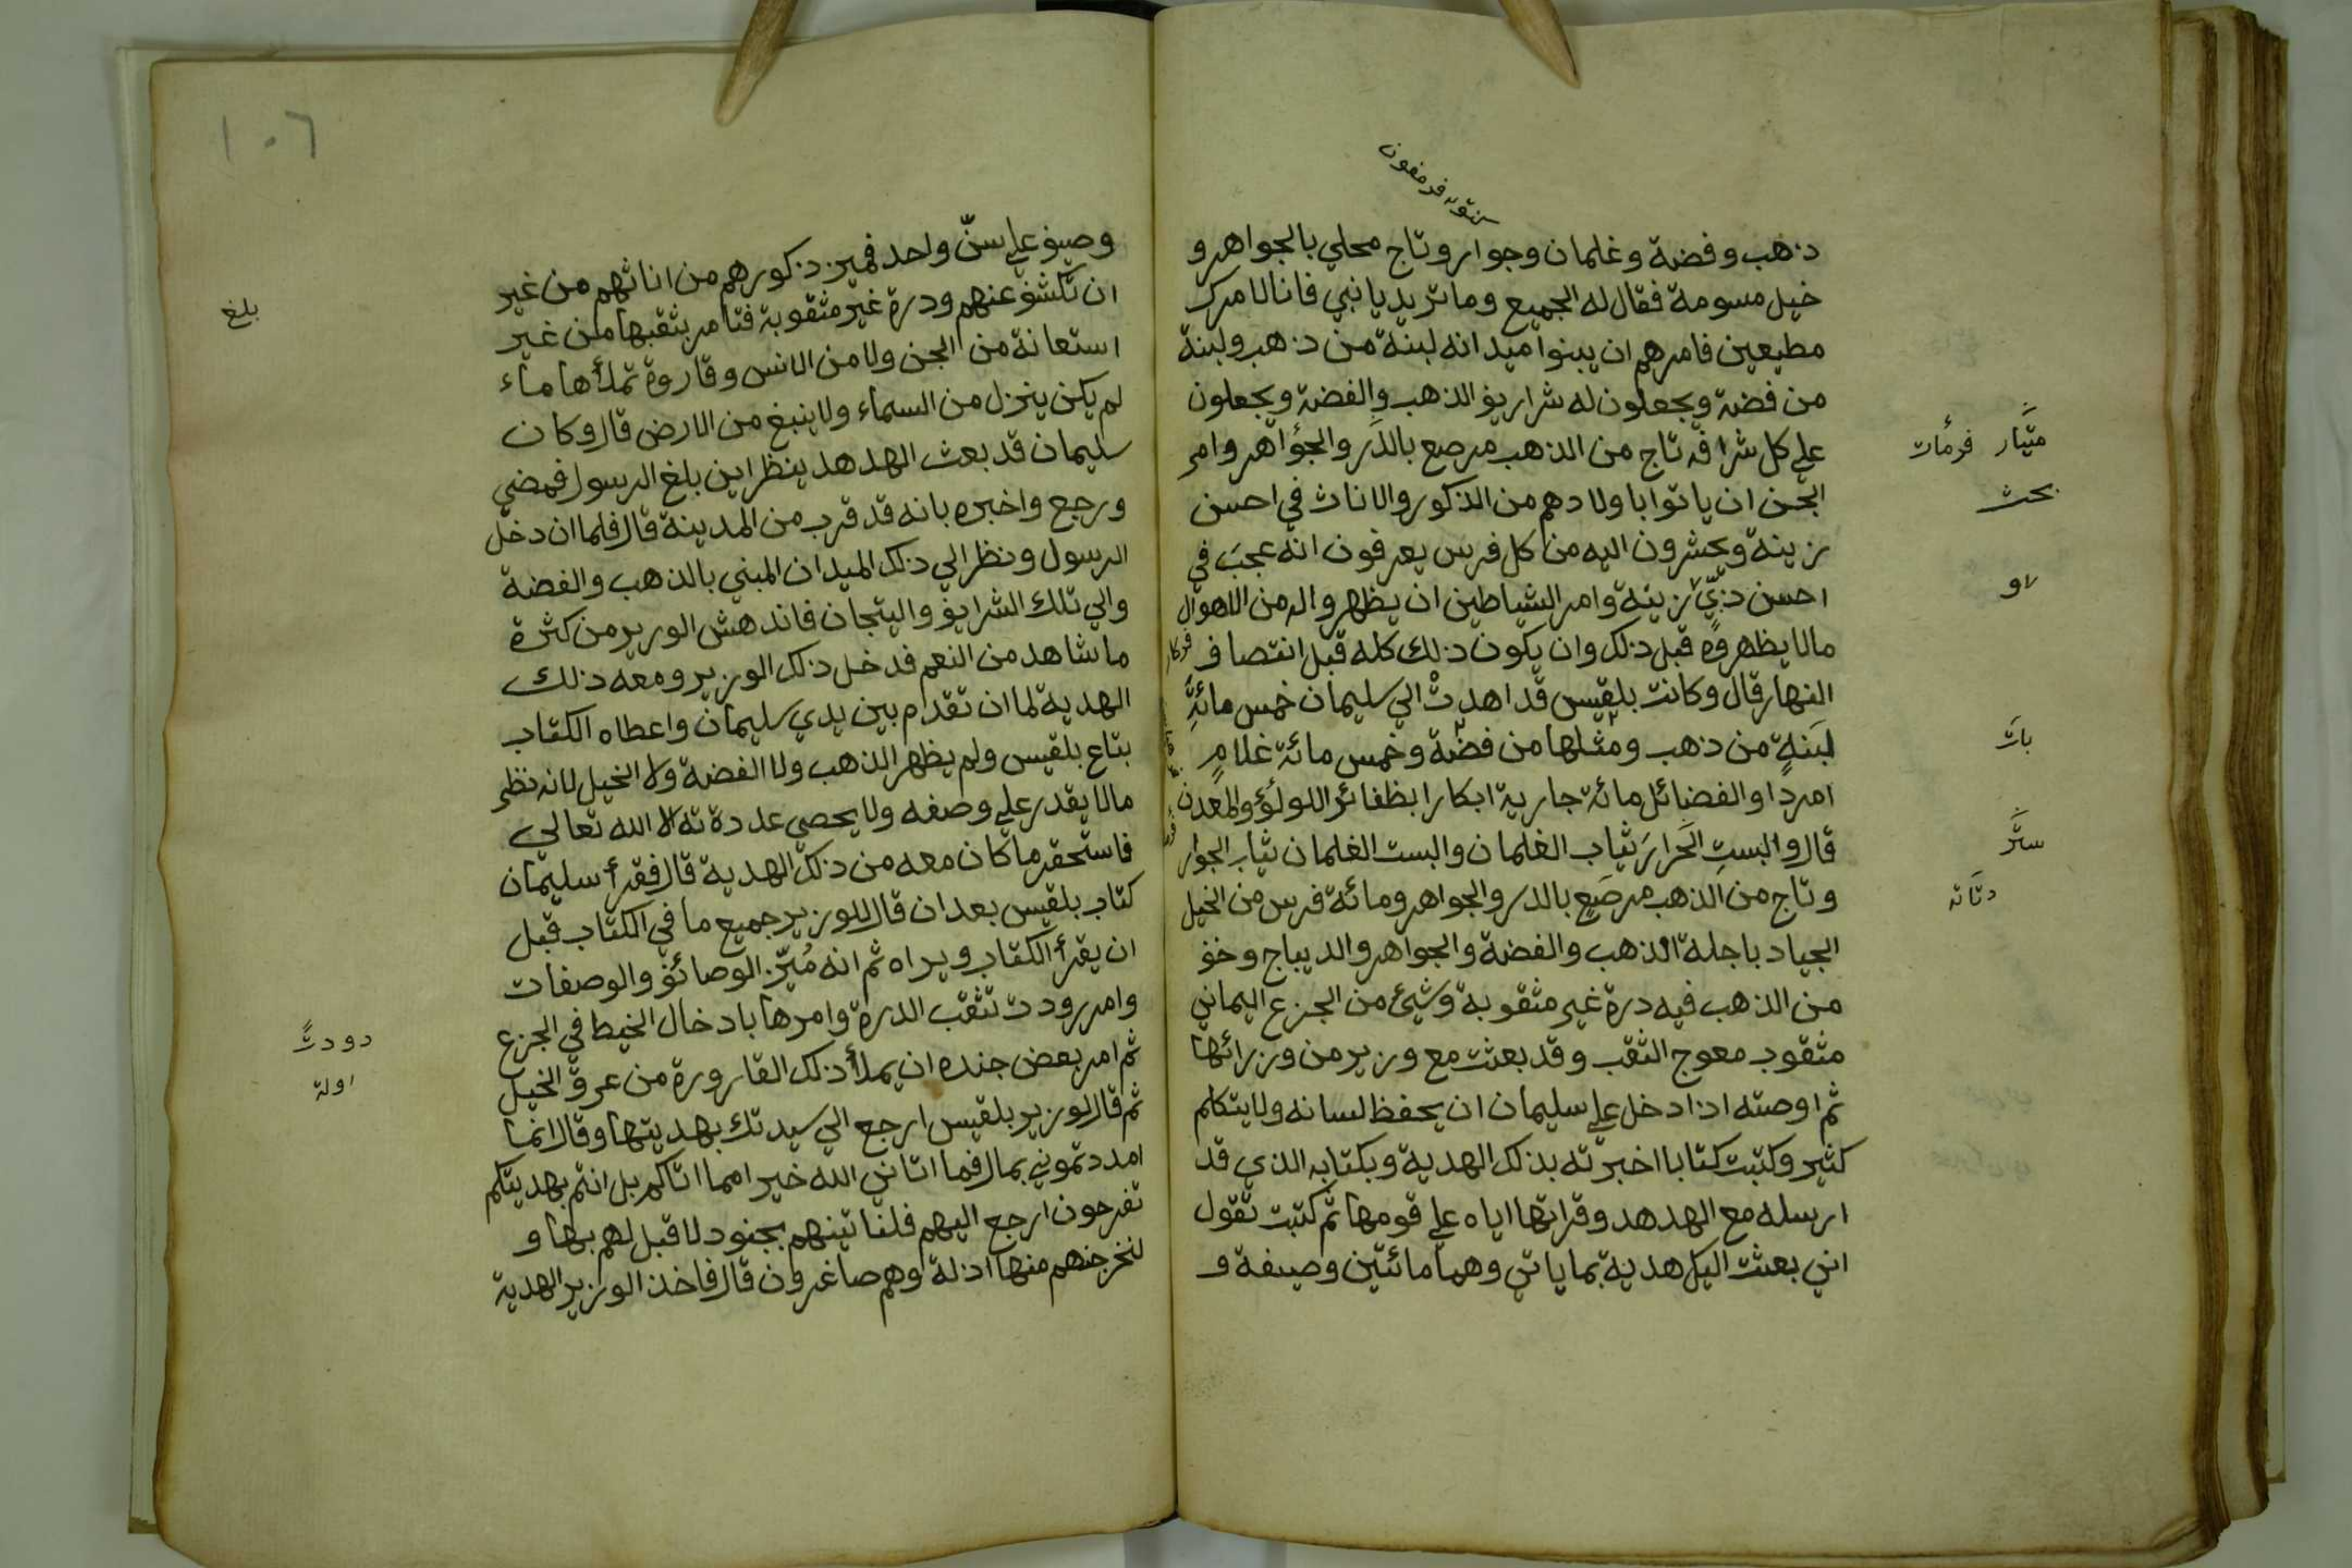 ذهب وفضة وغلمان وجوار وتاج محلي بالجواهر و
خيل مسومة فقال له الجميع وما تريد يا نبي فانا لامرك
مطيعين فامرهم ان يبنوا ميدانه لبنة من ذهب ولبنة
من فضة ويجعلون له شراريف الذهب والفضة ويجعلون
علي كل شرافه تاج من الذهب مرصع بالدَر والجؤاهر وامر
الجن ان ياتوا باولادهم من الذكور والاناث في احسن
زينة ويحشرون اليه من كل فرس يعرفون انه عجبَ في
احسن ذيّ زينة وامر الشياطين ان يظهروا له من الاهوال
مالا يظهروه قبل ذلك وان يكون ذلك كله قبل انتصاف
النهار قال وكانت بلقيس قد اهدتْ الي سليمان خمس مائةِ
لبَنةٍ من ذهب ومثلها من فضة وخمس مائة غلامٍ
امردا والفضائل مائة جارية ابكارا بظفائر اللولؤ والمعدن
قال والبستِ الحَرارَ ثياب الغلمان والبست الغلمان ثياب الجوار
وتاج من الذهب مرصَع بالدر والجواهر ومائة فرس من الخيل
الجياد باجلة الذهب والفضة والجواهر والديباج وخف
من الذهب فيه درة غير مثقوبة وشيئ من الجزع اليماني
مثقوب معوج الثقب وقد بعثت مع وزير من وزرائها
ثم اوصته اذا دخل علي سليمان ان يحفظ لسانه ولا يتكلم
كثير وكتبت كتابا اخبرته بذلك الهدية وبكتابه الذي قد
ارسله مع الهدهد وقراتها اياه علي قومها ثم كتبت تقول
اني بعثت اليك هدية بما ياتي وهما مائتين وصيفة و
متيَار فرمُات
بحث
لاو
باتَ
سترَ
دتَانه
١٠٦
وصيف علي سنّ واحد فميز ذكورهم من اناثهم من غير
ان تكشف عنهم ودرة غير مثقوبة فتامر بثقبها من غير
استعانة من الجن ولا من الانس وقاروة تملأها ماء
لم يكن ينزل من السماء ولا ينبغ من الارض قال وكان
سليمان قد بعث الهدهد ينظر اين بلغ الرسول فمضي
ورجع واخبره بانه قد قرب من المدينة قال فلما ان دخل
الرسول ونظر الي ذلك الميدان المبني بالذهب والفضة
والي تلك الشرايف والتيجان فاندهش الوزير من كثرة
ما شاهد من النعم فدخل ذلك الوزير ومعه ذلك
الهدية لما ان تقدام بين يدي سليمان واعطاه الكتاب
بتاع بلقيس ولم يظهر الذهب ولا الفضة ولا الخيل لانه نظر
مالا يقدر علي وصفه ولا يحصي عددة ته الا الله تعالي
فاستحقر ما كان معه من ذلك الهدية قال فقرأ سليمان
كتاب بلقيس بعد ان قال للوزير جميع ما في الكتاب قبل
ان يقرأ الكتاب ويراه ثم انه مُيّز الوصائف والوصفات
وامر رودت تثقب الدرة وامرها بادخال الخيط في الجزع
ثم امر بعض جنده ان يملأ ذلك القارورة من عرق الخيل
ثم قال لوزير بلقيس ارجع الي سيدتك بهديتها وقال انما
امددتموني بمال فما اتاني الله خير امما اتاكم بل انتم بهديتكم
تفرحون ارجع اليهم فلناتينهم بجنود لا قبل لهم بها و
لنخرجنهم منها اذلة وهم صاغرون قال فاخذ الوزير الهدية
بلغ
دودتً
اوله